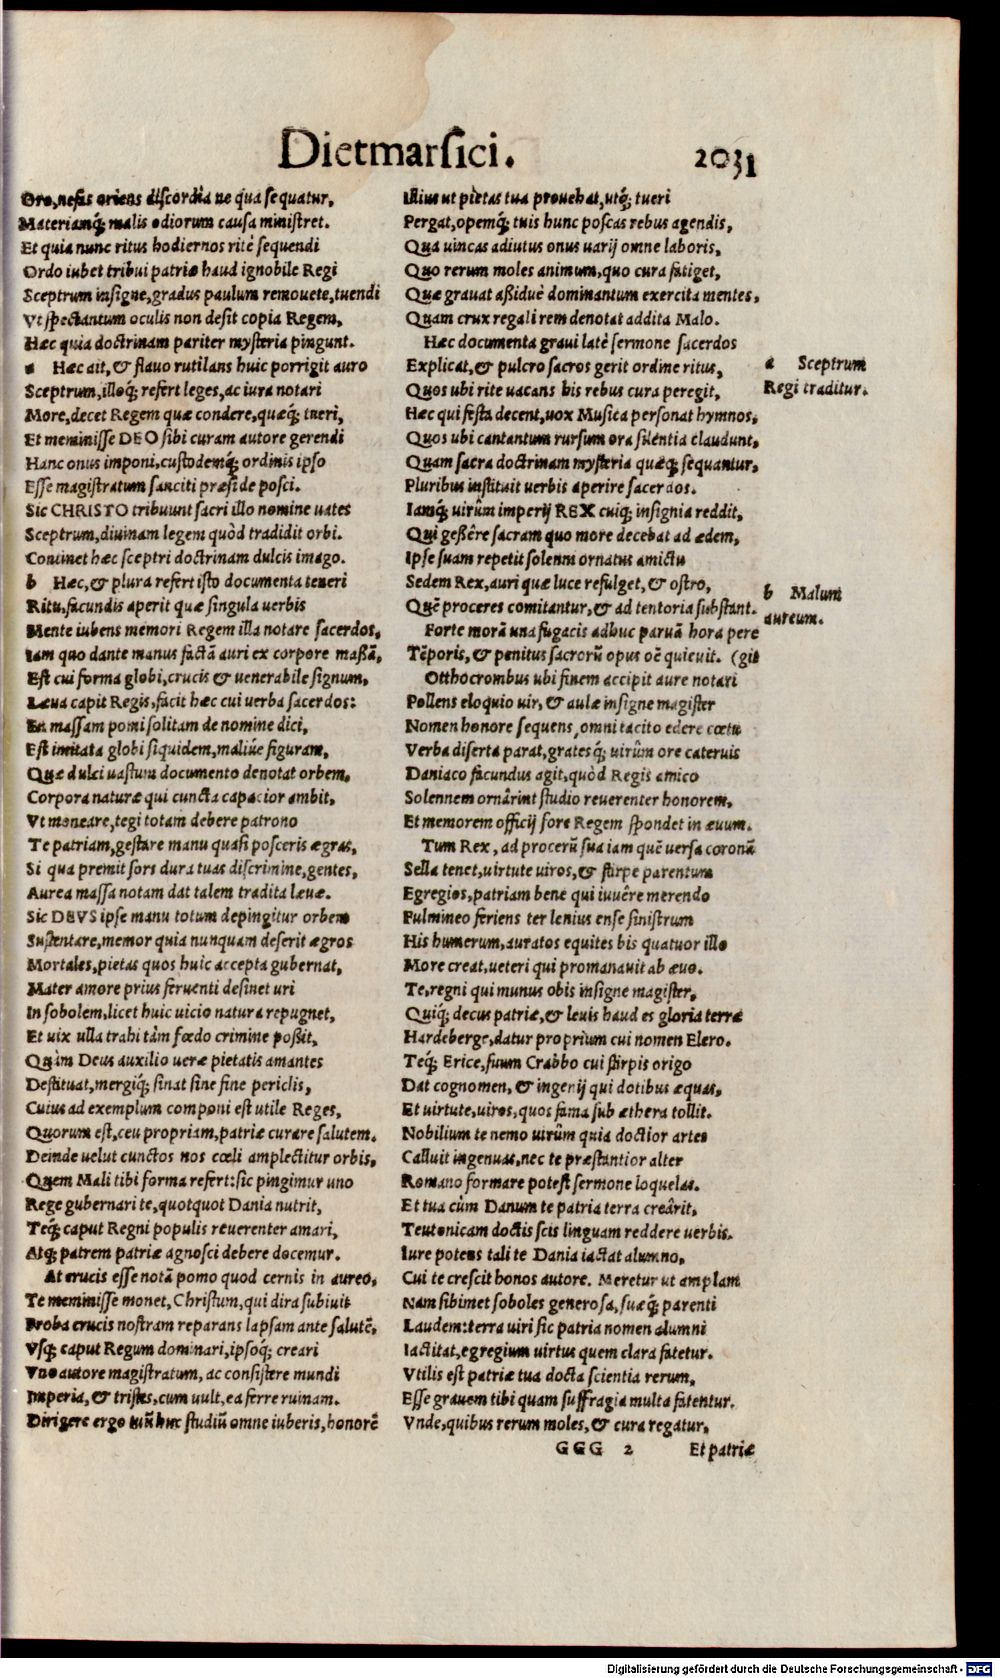 Dietmarsici.
2031
Oro, nefas oriens discordia ne qua sequatur,
Materiamq́; malis odiorum causa ministret.
Et quia nunc ritus hodiernos ritè sequendi
Ordo iubet tribui patriæ haud ignobile Regi
Sceptrum insigne, gradus paulum remouete, tuendi
Vt spectantum oculis non desit copia Regem,
Hæc quia doctrinam pariter mysteria pingunt.
a Hæc ait, & flauo rutilans huic porrigit auro
Sceptrum, illoq́; refert leges, ac iura notari
More, decet Regem quæ condere, quæq́; tueri,
Et meminisse DEO sibi curam autore gerendi
Hanc onus imponi, custodemq́; ordinis ipso
Esse magistratum sanciti præside posci.
Sic CHRISTO tribuunt sacri illo nomine uates
Sceptrum, diuinam legem quòd tradidit orbi.
Continet hæc sceptri doctrinam dulcis imago.
b Hæc, & plura refert isto documenta teneri
Ritu, facundis aperit quæ singula uerbis
Mente iubens memori Regem illa notare sacerdos,
Iam quo dante manus factā auri ex corpore maßā,
Est cui forma globi, crucis & uenerabile signum,
Læua capit Regis, facit hæc cui uerba sacerdos:
En massam pomi solitam de nomine dici,
Est imitata globi siquidem, maliúe figuram,
Quæ dulci uastum documento denotat orbem,
Corpora naturæ qui cuncta capacior ambit,
Vt moneare, tegi totam debere patrono
Te patriam, gestare manu quasi posceris ægras,
Si qua premit sors dura tuas discrimine, gentes,
Aurea massa notam dat talem tradita læuæ.
Sic DEVS ipse manu totum depingitur orbem
Sustentare, memor quia nunquam deserit ægros
Mortales, pietas quos huic accepta gubernat,
Mater amore prius feruenti desinet uri
In sobolem, licet huic uicio natura repugnet,
Et uix ulla trahi tàm fœdo crimine poßit,
Quàm Deus auxilio ueræ pietatis amantes
Destituat, mergiq́; sinat sine fine periclis,
Cuius ad exemplum componi est utile Reges,
Quorum est, ceu propriam, patriæ curare salutem.
Deinde uelut cunctos nos cœli amplectitur orbis,
Quem Mali tibi forma refert: sic pingimur uno
Rege gubernari te, quotquot Dania nutrit,
Teq́; caput Regni populis reuerenter amari,
Atq́; patrem patriæ agnosci debere docemur.
At crucis esse notā pomo quod cernis in aureo,
Te meminisse monet, Christum, qui dira subiuit
Proba crucis nostram reparans lapsam ante salutē,
Vsq́; caput Regum dominari, ipsoq́; creari
Vno autore magistratum, ac consistere mundi
Imperia, & tristes, cum uult, ea ferre ruinam.
Dirigere ergo tuū huc studiū omne iuberis, honorē
Illius ut pietas tua prouehat, utq́; tueri
Pergat, opemq́; tuis hunc poscas rebus agendis,
Qua uincas adiutus onus uarij omne laboris,
Quo rerum moles animum, quo cura fatiget,
Quæ grauat aßiduè dominantum exercita mentes,
Quam crux regali rem denotat addita Malo.
Hæc documenta graui latè sermone sacerdos
Explicat, & pulcro sacros gerit ordine ritus,
Quos ubi rite uacans his rebus cura peregit,
Hæc qui festa decent, uox Musica personat hymnos,
Quos ubi cantantum rursum ora silentia claudunt,
Quam sacra doctrinam mysteria quæq́; sequantur,
Pluribus instituit uerbis aperire sacerdos.
Iamq́; uirûm imperij REX cuiq́; insignia reddit,
Qui geßêre sacram quo more decebat ad ædem,
Ipse suam repetit solenni ornatus amictu
Sedem Rex, auri quæ luce refulget, & ostro,
Quē proceres comitantur, & ad tentoria substant.
Forte morā una fugacis adhuc paruā hora pere
Tēporis, & penitus sacrorū opus oē quieuit. (git
Otthocrombus ubi finem accipit aure notari
Pollens eloquio uir, & aulæ insigne magister
Nomen honore sequens, omni tacito edere cœtu
Verba diserta parat, gratesq́; uirûm ore cateruis
Daniaco facundus agit, quòd Regis amico
Solennem ornârint studio reuerenter honorem,
Et memorem officij fore Regem spondet in æuum.
Tum Rex, ad procerū sua iam quē uersa coronā
Sella tenet, uirtute uiros, & stirpe parentum
Egregios, patriam bene qui iuuêre merendo
Fulmineo feriens ter lenius ense sinistrum
His humerum, auratos equites bis quatuor illo
More creat, ueteri qui promanauit ab æuo.
Te, regni qui munus obis insigne magister,
Quiq́; decus patriæ, & leuis haud es gloria terræ
Hardeberge, datur proprium cui nomen Elero.
Teq́; Erice, suum Crabbo cui stirpis origo
Dat cognomen, & ingenij qui dotibus æquas,
Et uirtute, uiros, quos fama sub æthera tollit.
Nobilium te nemo uirûm quia doctior artes
Calluit ingenuas, nec te præstantior alter
Romano formare potest sermone loquelas.
Et tua cùm Danum te patria terra creârit,
Teutonicam doctis scis linguam reddere uerbis.
Iure potens tali te Dania iactat alumno,
Cui te crescit honos autore. Meretur ut amplam
Nam sibimet soboles generosa, suæq́; parenti
Laudem: terra uiri sic patria nomen alumni
Iactitat, egregium uirtus quem clara fatetur.
Vtilis est patriæ tua docta scientia rerum,
Esse grauem tibi quam suffragia multa fatentur.
Vnde, quibus rerum moles, & cura regatur,
a Sceptrum
Regi traditur.
b Malum
aureum.
GGG 2 Et patriæ
Digitalisierung gefördert durch die Deutsche Forschungsgemeinschaft - DFG